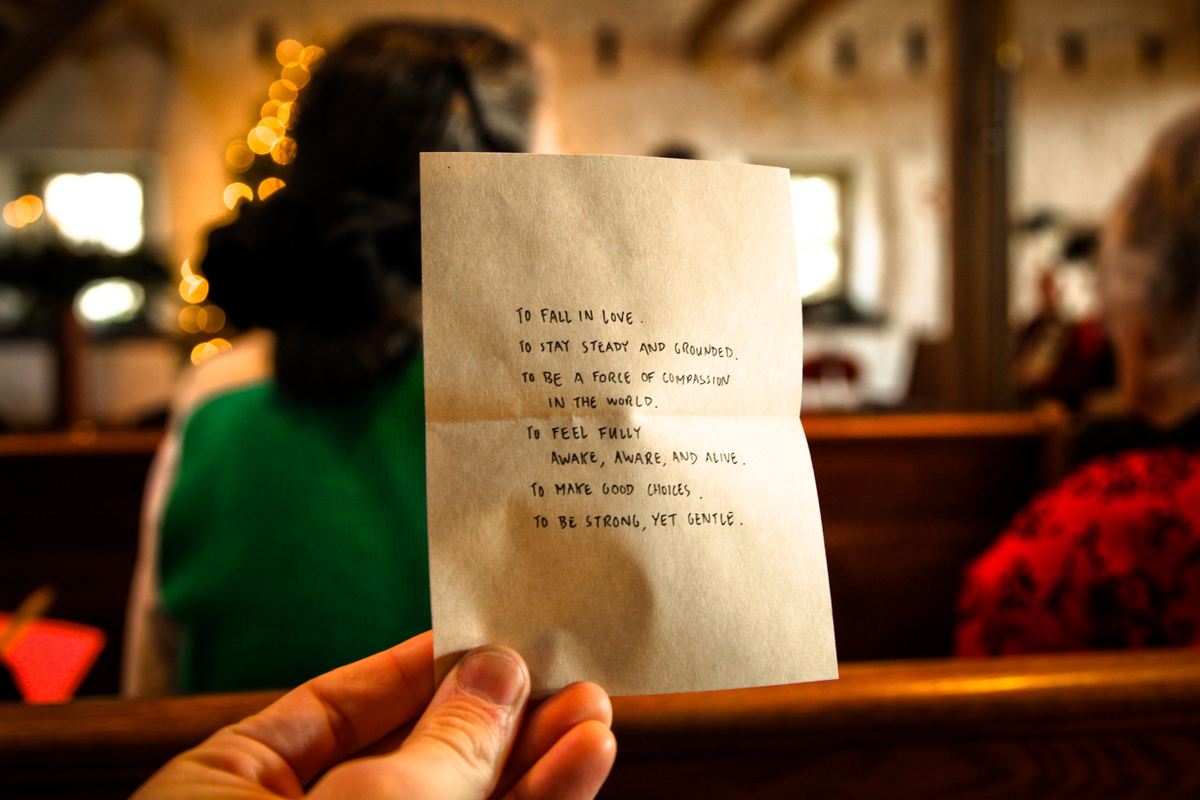 TO FALL IN LOVE.
TO STAY STEADY AND GROUNDED.
TO BE A FORCE OF COMPASSION
IN THE WORLD.
TO FEEL FULLY
AWAKE, AWARE, AND ALIVE.
TO MAKE GOOD CHOICES.
TO BE STRONG, YET GENTLE.